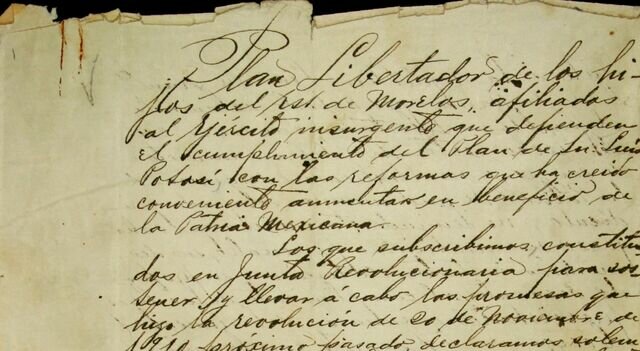 Plan Libertador de los hi-
jos del Est. de Morelos, afiliados
al Ejército insurgente que defienden
el cumplimiento del Plan de Sn. Luis
Potosí con las reformas que ha creido
conveniente aumentar en beneficio de
la Patria Mexicana.
Los que subscribimos, constitui-
dos en Junta Revolucionaria para sos-
tener y llevar á cabo las promesas que
hizo la revolución de 20 de Noviembre de
1910 próximo pasado, declaramos solem